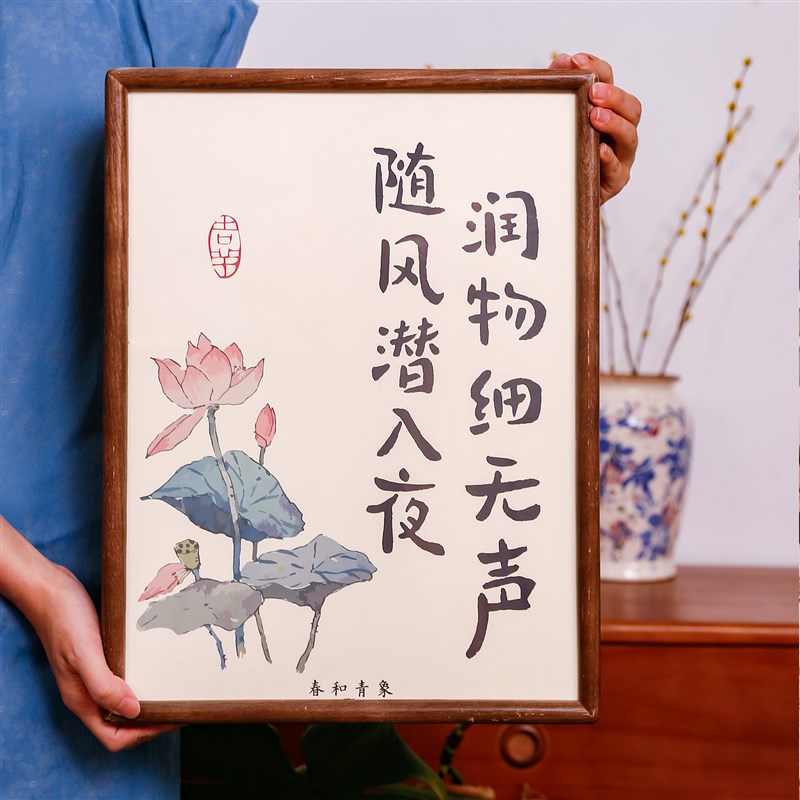 润物细无声
随风潜入夜
春和青象